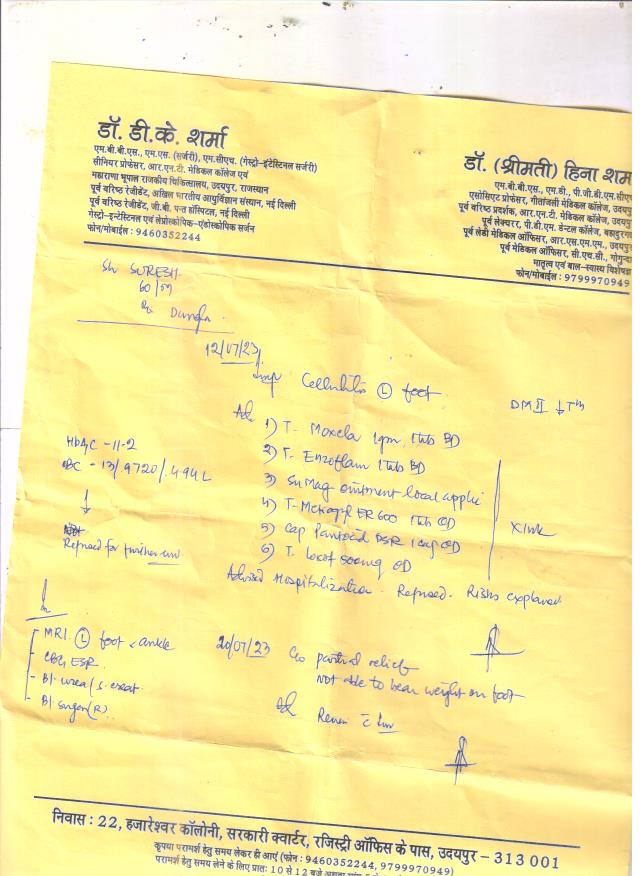 डॉ. डी.के. शर्मा
एम.बी.बी.एस., एम.एस. (सर्जरी), एम.सीएच. (गेस्ट्रो-इंटेस्टिनल सर्जरी)
सीनियर प्रोफेसर, आर.एन.टी. मेडिकल कॉलेज एवं
महाराणा भूपाल राजकीय चिकित्सालय, उदयपुर, राजस्थान
पूर्व वरिष्ठ रेजीडेंट, अखिल भारतीय आयुर्विज्ञान संस्थान, नई दिल्ली
पूर्व वरिष्ठ रेजीडेंट, जी.बी. पन्त हॉस्पिटल, नई दिल्ली
गेस्ट्रो-इन्टेस्टिनल एवं लेप्रोस्कोपिक-एंडोस्कोपिक सर्जन
फोन/मोबाईल : 9460352244
डॉ. (श्रीमती) हिना शर्म
एम.बी.बी.एस., एम.डी., पी.जी.डी.एम.सीएच
एसोसिएट प्रोफेसर, गीतांजली मेडिकल कॉलेज, उदयपु
पूर्व वरिष्ठ प्रदर्शक, आर.एन.टी. मेडिकल कॉलेज, उदयपु
पूर्व लेक्चरर, पी.डी.एम. डेन्टल कॉलेज, बहादुरगढ़
पूर्व लेडी मेडिकल ऑफिसर, आर.एस.एम.एम., उदयपु
पूर्व मेडिकल ऑफिसर, सी.एच.सी., गोगुन्दा
मातृत्व एवं बाल-स्वास्थ्य विशेषज्ञ
फोन/मोबाईल : 9799970949
Sh SURESH
60/M
12/07/23
Imp Cellulitis (L) foot
DM II
Ad
1) T- Moxcla 1gm 1tab BD
2) T- Enzoflam 1tab BD
3) SuMag ointment local applic
4) T- ER 600 1tab OD
5) Cap Pantocid DSR 1cap OD
6) T. 500mg OD
X 1wk
Advised Hospitalization. Refused. Risks explained
HbA1C - 11.2
CBC - 13/9720/4.94L
Refused for further inv
MRI (L) foot & ankle
CBC, ESR
Bl urea/S. creat
Bl sugar (R)
20/07/23 C/o partial relief
Not able to bear weight on foot
Ad Review c inv
निवास : 22, हजारेश्वर कॉलोनी, सरकारी क्वार्टर, रजिस्ट्री ऑफिस के पास, उदयपुर - 313 001
कृपया परामर्श हेतु समय लेकर ही आएं (फोन : 9460352244, 9799970949)
परामर्श हेतु समय लेने के लिए प्रातः 10 से 12 बजे